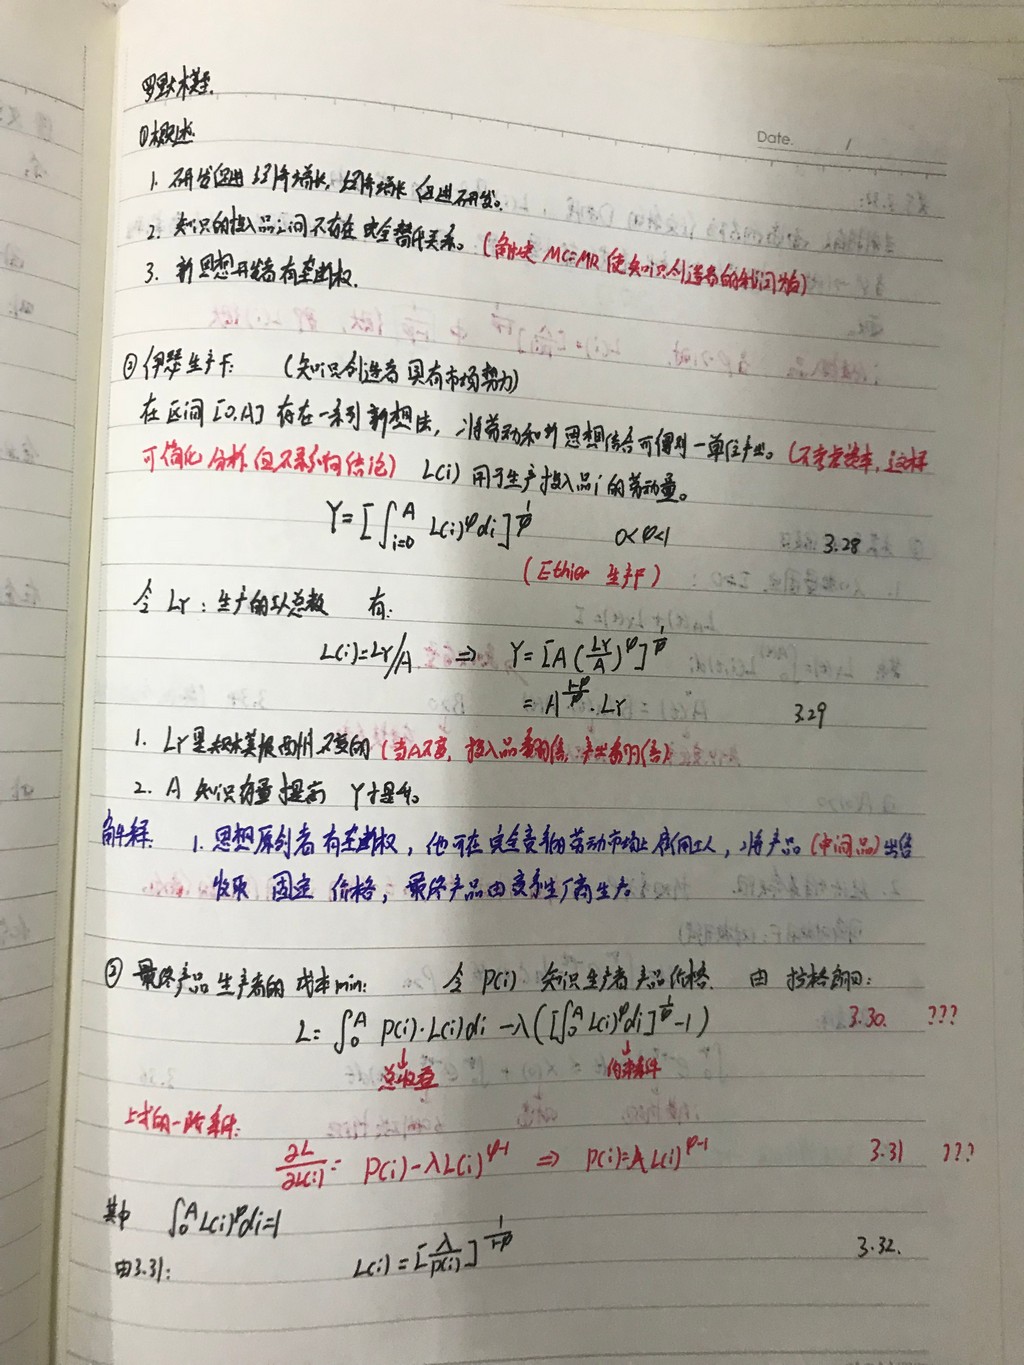 罗默模型.
Date. /
①概述.
1. 研发促进经济增长, 经济增长促进研发。
2. 知识的投入品之间不存在完全替代关系。(解决 MC=MR 使知识创造者的利润为0)
3. 新思想开发者有垄断权.
② 伊瑟生产F: (知识创造者具有市场势力)
在区间[0,A]存在一系列新想法, 将劳动和新思想结合可得到一单位产出。(不考虑资本, 这样
可简化分析但不影响结论) L(i) 用于生产投入品i的劳动量。
Y=[∫_{i=0}^{A} L(i)^φ di]^{1/φ} 0<φ<1 3.28
(Ethier 生产F)
令 LY: 生产的工人总数 有:
L(i)=LY/A ⇒ Y=[A(LY/A)^φ]^{1/φ}
= A^{(1-φ)/φ}·LY 3.29
1. LY 是规模报酬不变的 (当A不变, 投入品翻倍, 产出翻倍)
2. A 知识存量提高 Y才提高。
解释: 1. 思想原创者有垄断权, 他可在完全竞争的劳动市场上雇佣工人, 将产品(中间品)出售
收取 固定 价格, 最终产品由竞争性厂商生产。
③ 最终产品生产者的成本min: 令 P(i) 知识生产者产品价格. 由 拉格朗日:
L= ∫_0^A P(i)·L(i)di -λ([∫_0^A L(i)^φ di]^{1/φ} -1) 3.30. ???
总收益 约束条件
上式的一阶条件:
∂L/∂L(i) = P(i)-λL(i)^{φ-1} ⇒ P(i)=λL(i)^{φ-1} 3.31 ???
其中 ∫_0^A L(i)^φ di=1
由3.31: L(i) = [λ/P(i)]^{1/(1-φ)} 3.32.